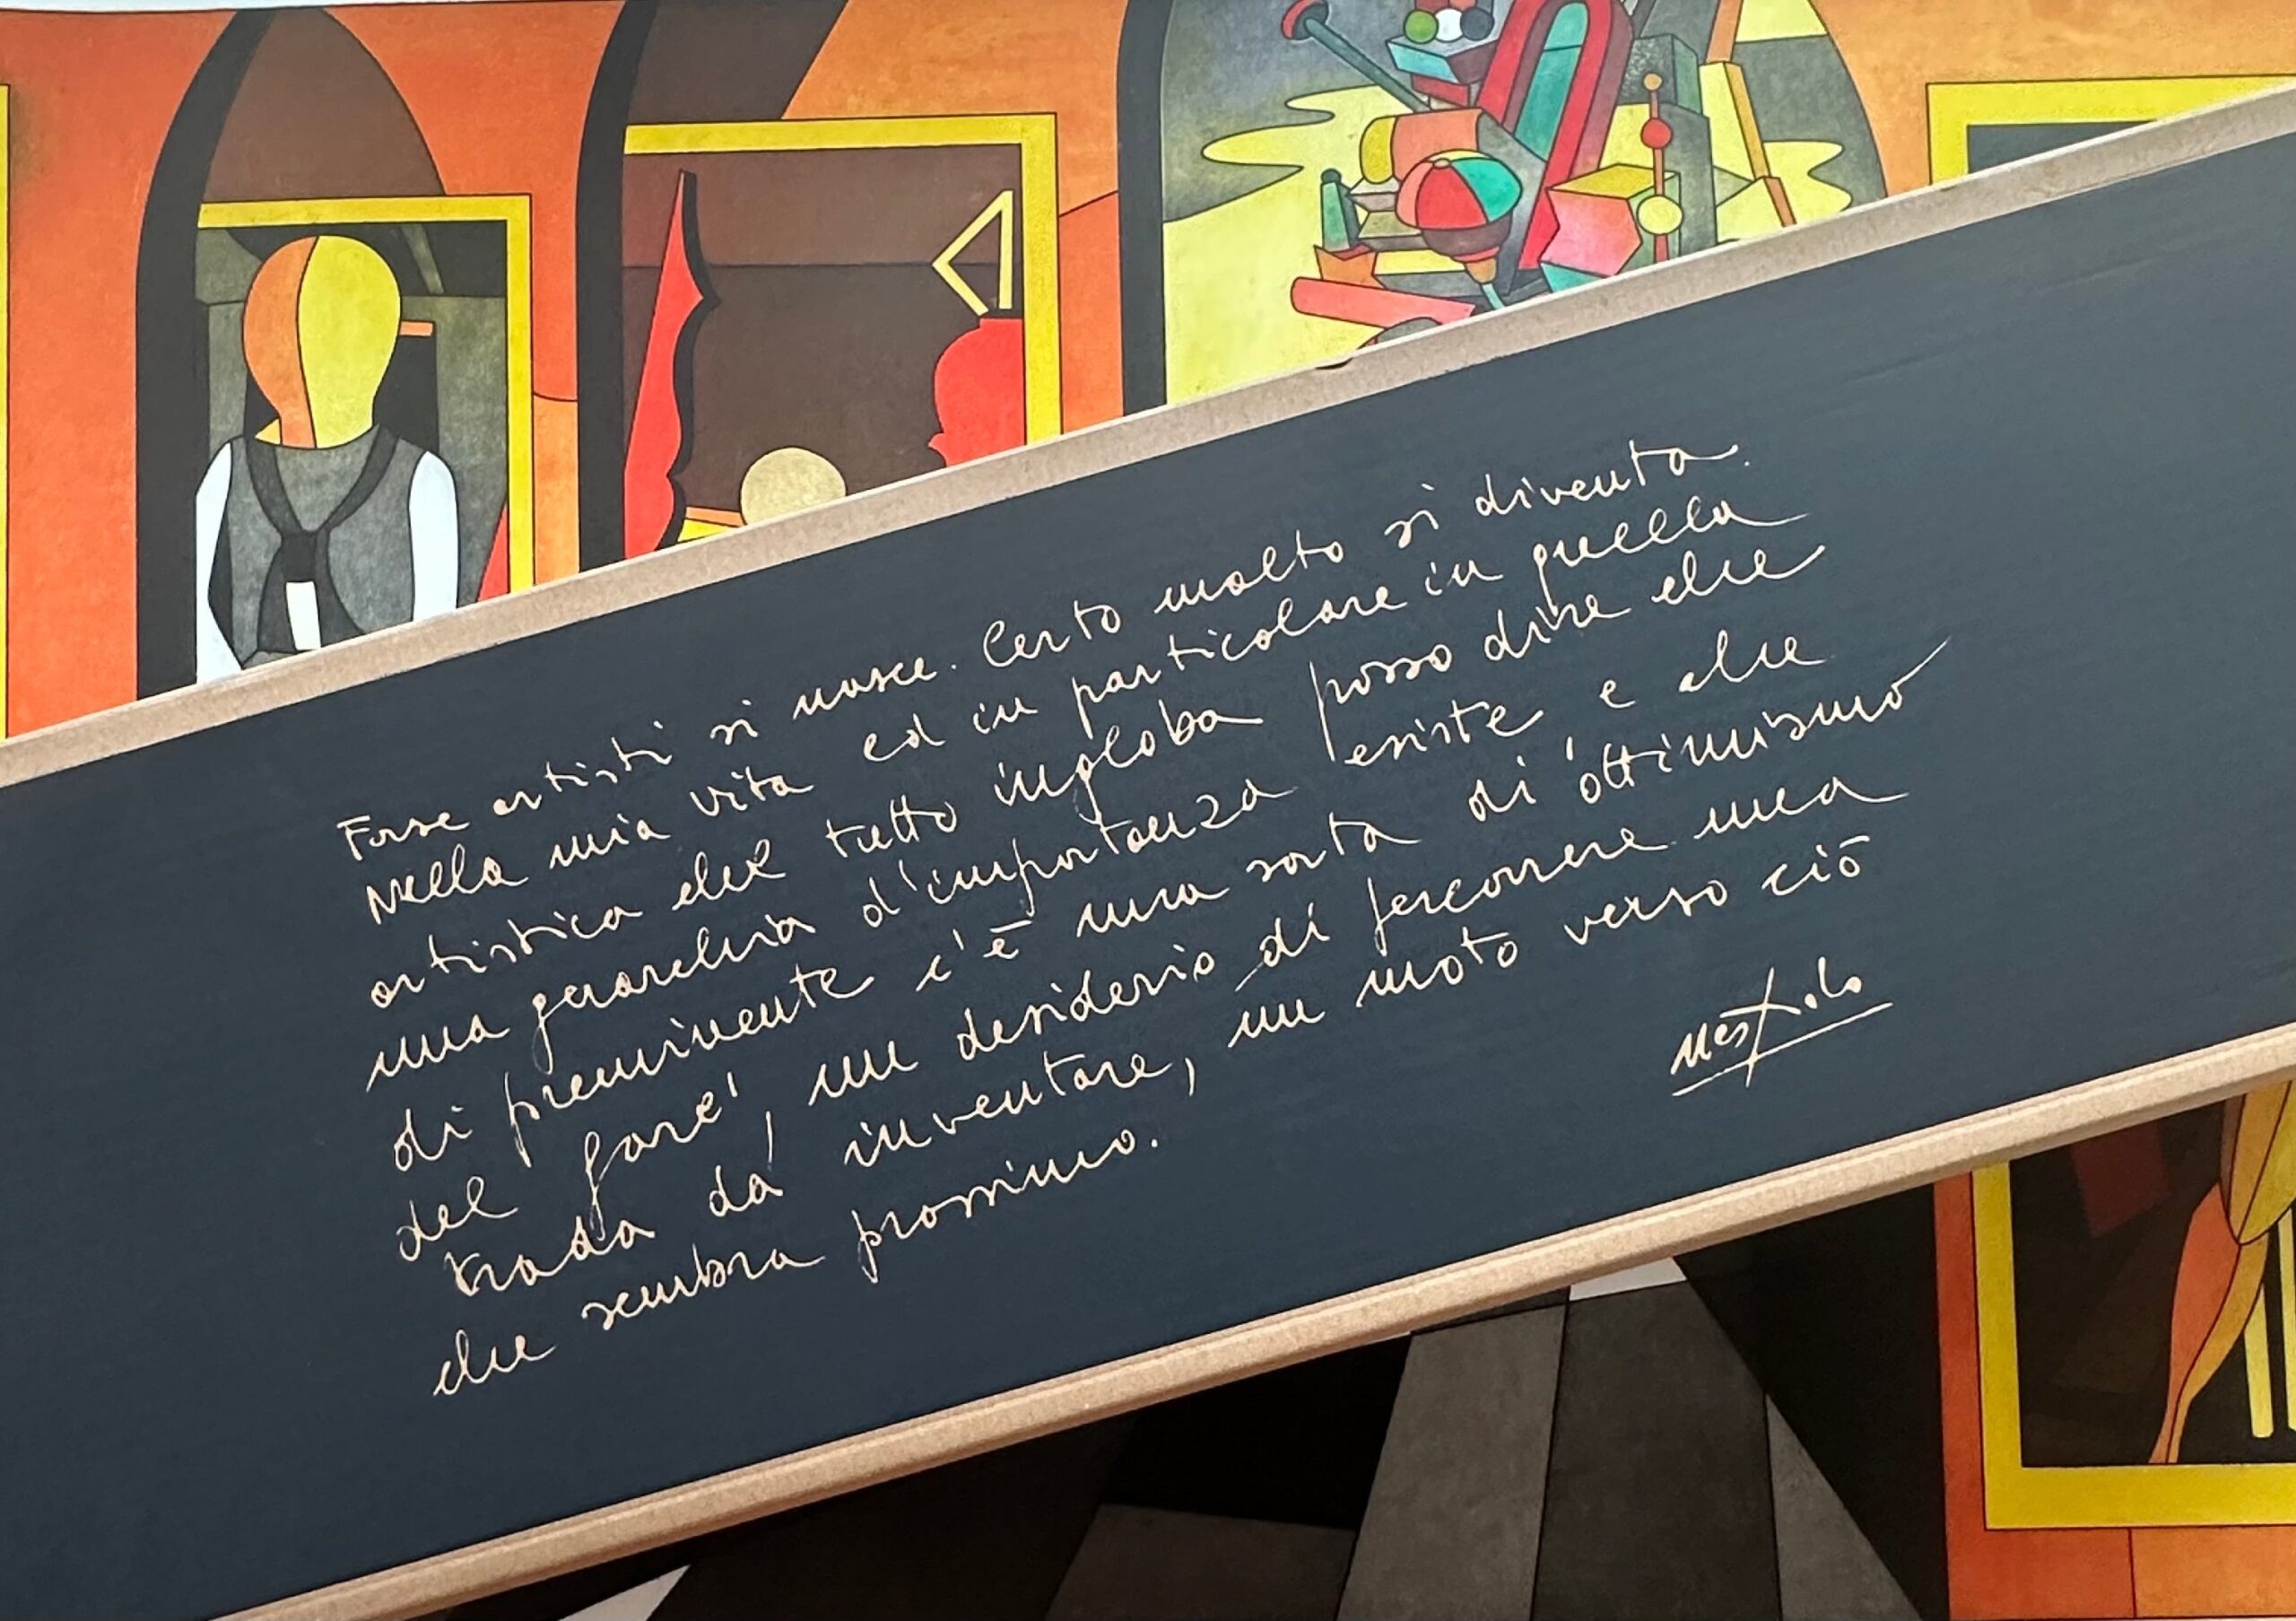 Forse artisti si nasce. Certo molto si diventa.
Nella mia vita ed in particolare in quella
artistica che tutto ingloba posso dire che
una gerarchia d'importanza esiste e che
di preminente c'è una sorta di 'ottimismo
del fare', un desiderio di percorrere una
trada da inventare, un moto verso ciò
che sembra prossimo.
Nespolo